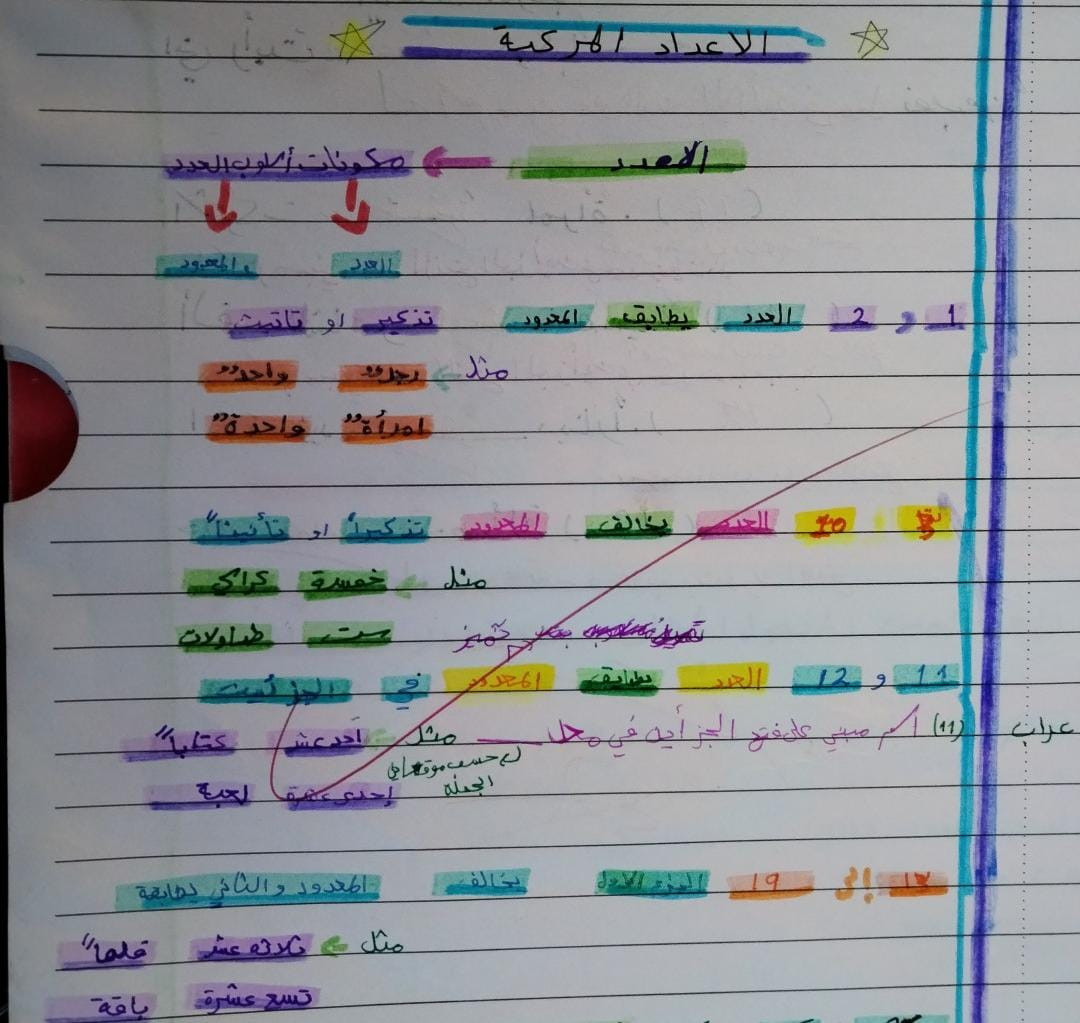 الاعداد المركبة
الاعدد مكونات أسلوب العدد
العدد والمعدود
1 و 2 العدد يطابق المعدود تذكير او تانيث
مثل رجلٌ واحدٌ
امرأةٌ واحدةٌ
10 العدد يخالف المعدود تذكيراً او تأنيثاً
مثل خمسة كراسي
ست طاولات
تميز
11 و 12 العدد يطابق المعدود في الجزئيت
عراب (11) اسم مبني على فتح الجزأين في محل
مثل أحد عشر كتاباً
حسب موقعها في الجملة
إحدى عشرة لعبة
13 إلى 19 الجزء الاول يخالف المعدود والثاني يطابقة
مثل ثلاثه عشر قلماً
تسع عشرة باقة